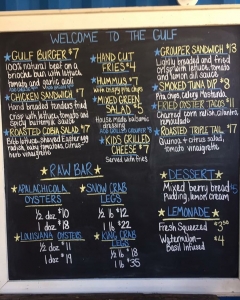 WELCOME TO THE GULF
GULF BURGER $7
100% natural beef on a
brioche bun with lettuce
tomato and garlic aioli
CHICKEN SANDWICH $7
Hand breaded tenders fried
crisp with lettuce, tomato and
Spicy buttermilk sauce
ROASTED COBIA SALAD $7
Bibb lettuce, shaved Easter egg
radish, baby tomatoes, citrus-
herb vinaigrette
HAND CUT
FRIES $4
HUMMUS $7
with crispy pita chips
MIXED GREEN
SALAD
House made balsamic
dressing
KIDS GRILLED
CHEESE
Served with fries
GROUPER SANDWICH $13
Lightly breaded and fried
crisp with lettuce, tomato
and lemon dill sauce
SMOKED TUNA DIP $8
Pita chips, celery, mustard
FRIED OYSTER TACOS $11
Charred corn relish, cilantro
ROASTED TRIPLE TAIL $7
Quinoa + citrus salad,
tomato vinaigrette
RAW BAR
APALACHICOLA
OYSTERS
1/2 doz $10
1 doz $18
LOUISIANA OYSTERS
1/2 doz $11
1 doz $19
SNOW CRAB
LEGS
1/2 lb $12
1 lb $22
KING CRAB
LEGS
1/2 lb $18
1 lb $35
DESSERT
Mixed berry bread $5
Pudding, lemon cream
LEMONADE
Fresh Squeezed $3.50
Watermelon - $4
Basil Infused